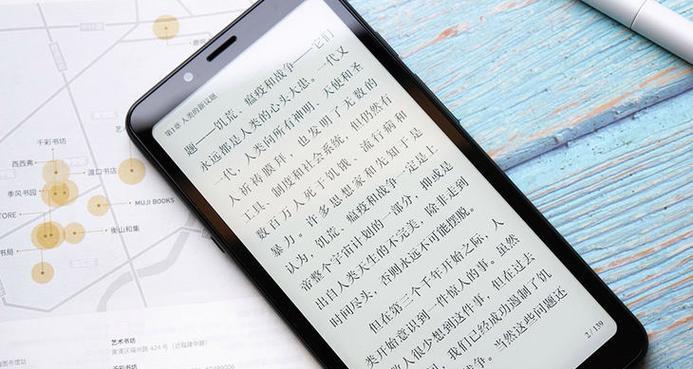 第1章 人类的新议题
题——饥荒、瘟疫和战争——它们
永远都是人类的心头大患。一代又
一代，人类向所有神明、天使和圣
人祈祷膜拜，也发明了无数的
工具、制度和社会系统，但仍然有
数百万人死于饥饿、流行病和
暴力。许多思想家和先知于是
认为，饥荒、瘟疫和战争一定是上
帝整个宇宙计划的一部分，抑或是
出自人类天生的不完美，除非走到
时间尽头，否则永远不可能摆脱。
但在第三个千年开始之际，人
类开始意识到一件惊人的事。虽然
人很少想到这件事，但在过去
我们已经成功遏制了饥
战争。当然这些问题还
2 / 139
千彩书坊
西西弗
渡口书店
季风书园
STORE
MUJI BOOKS
衡山和集
书局
艺术书坊
黄浦区福州路 424 号（近福建中路）
千彩书坊